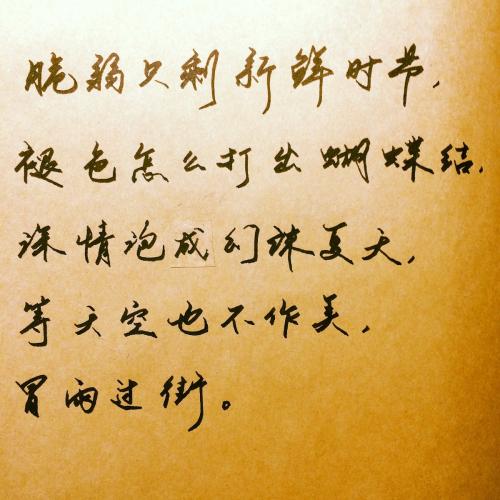 脆弱只剩新鲜时节,
褪色怎么打出蝴蝶结,
深情泡成幻 夏天,
等天空也不作美,
冒雨过街。